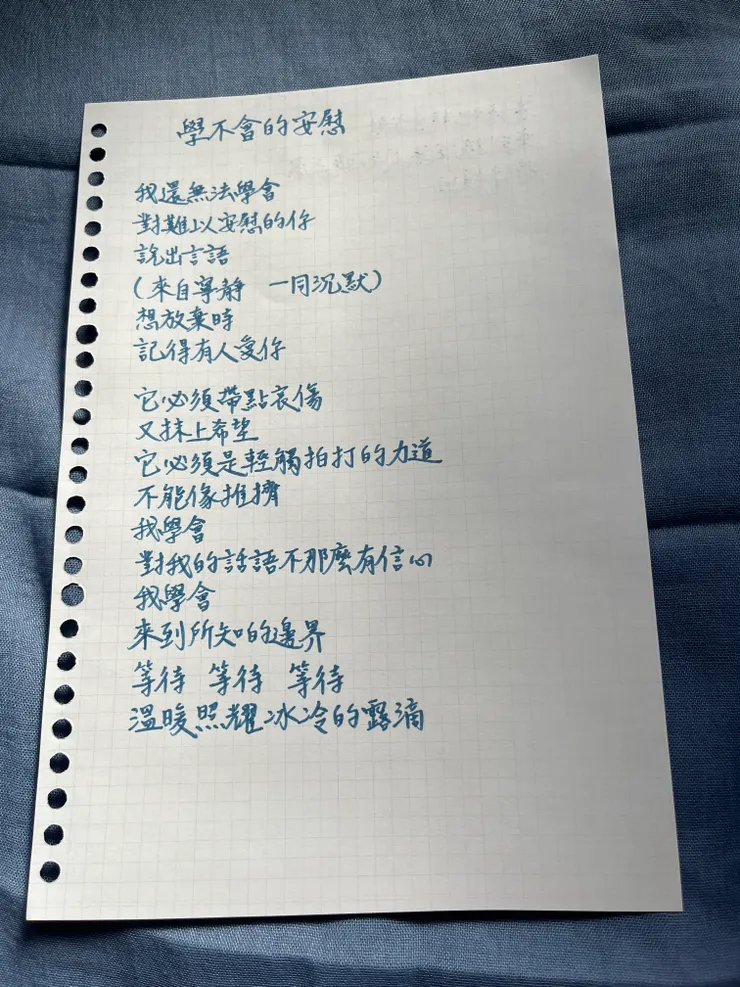 學不會的安慰
我還無法學會
對難以安慰的你
說出言語
(來自寧靜 一同沉默)
想放棄時
記得有人愛你
它必須帶點哀傷
又抹上希望
它必須是輕觸拍打的力道
不能像推擠
我學會
對我的話語不那麼有信心
我學會
來到所知的邊界
等待 等待 等待
溫暖照耀冰冷的露滴